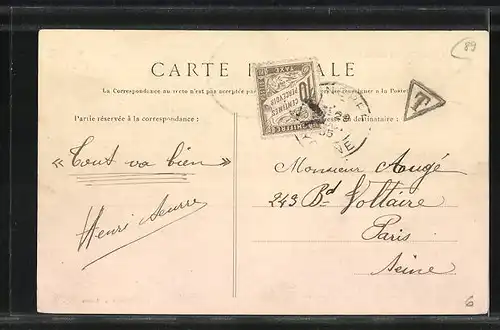 89
CARTE POSTALE
La Correspondance au recto n'est pas acceptée par
à la Poste
T
Partie réservée à la correspondance :
destinataire :
10
CENTIMES
À PERCEVOIR
« Tout va bien »
Henri
Monsieur Augé
243 Bd Voltaire
Paris
Seine